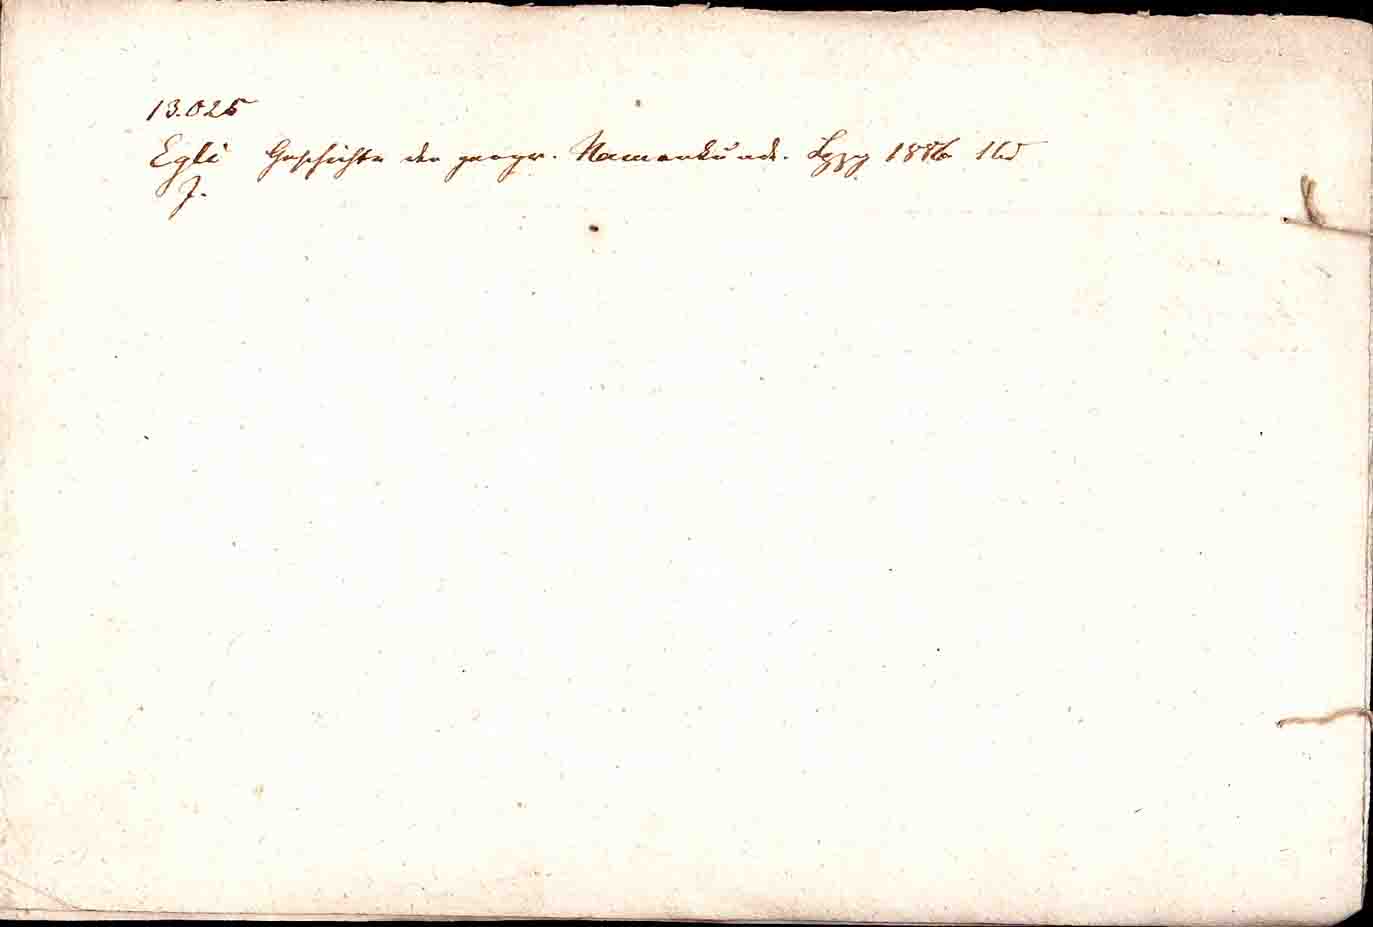 13.025
Egli Geschichte der geogr. Namenkunde. Lpzg 1886 1bd
J.